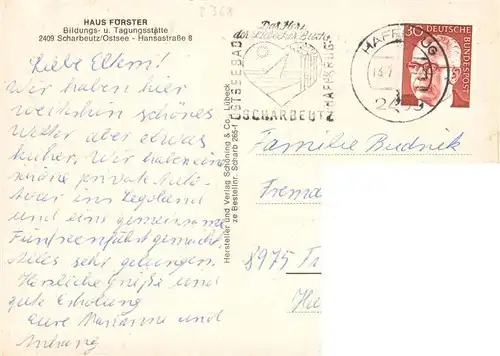 HAUS FORSTER
Bildungs- u. Tagungsstätte
2409 Scharbeutz/Ostsee - Hansastraße 8
Liebe Eltern!
Wir haben hier
weiterhin schönes
Wetter aber etwas
kühler. Wir haben eine
schöne private Auto-
tour ins Legoland
und eine gemeinsame
Fünfseenfahrt gemacht.
Alles sehr gelungen.
Herzliche Grüße und
gute Erholung
eure Marianne und
Hersteller und Verlag Schöning & Co., Lübeck
ze Bestellnr. Scharb 265-1
Das Herz
der Lübecker Bucht
OSTSEEBAD
HAFFKRUG
SCHARBEUTZ
HAFFKRUG
30
DEUTSCHE
BUNDESPOST
Familie Budnik
8975